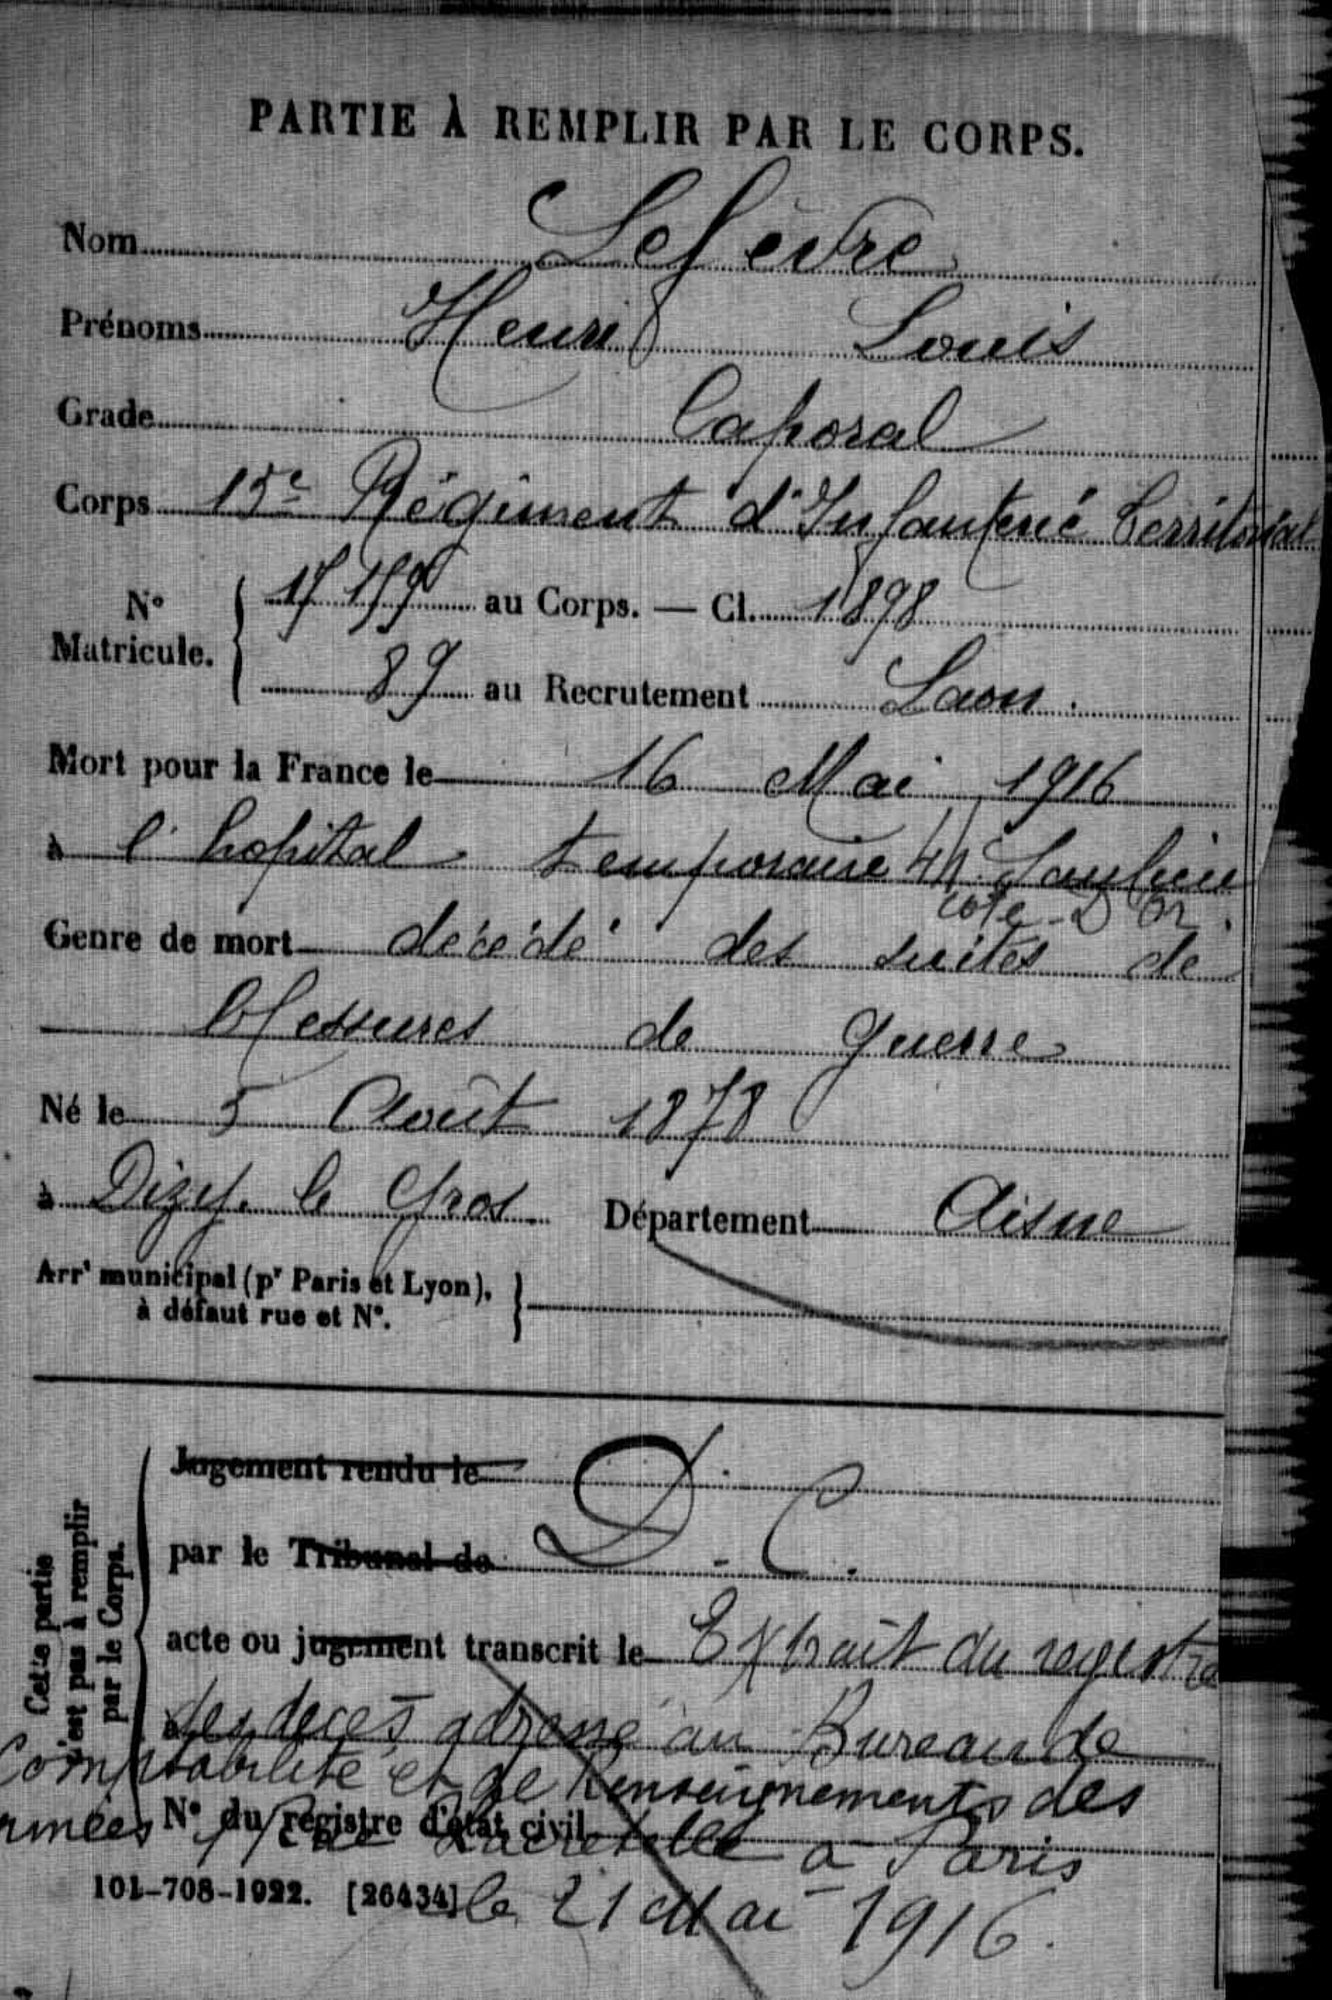 PARTIE À REMPLIR PAR LE CORPS.
Nom Lefèvre
Prénoms Henri Louis
Grade Caporal
Corps 15e Régiment d'Infanterie Territorial
N° Matricule. au Corps. — Cl. 1898
89 au Recrutement Laon.
Mort pour la France le 16 Mai 1916
à l'hopital temporaire 44 Saulieu
Cote-D'Or.
Genre de mort décédé des suites de
blessures de guerre
Né le 5 Août 1878
à Dizy. le Gros. Département Aisne
Arrt municipal (pr Paris et Lyon),
à défaut rue et N°.
Cette partie
n'est pas à remplir
par le Corps.
Jugement rendu le D. C.
par le Tribunal de
acte ou jugement transcrit le Extrait du registre
des décès adressé au Bureau de
Comptabilité et de Renseignements des
armées Rue Lacretelle à Paris
N° du registre d'état civil
le 21 Mai 1916.
101-708-1922. [26434]